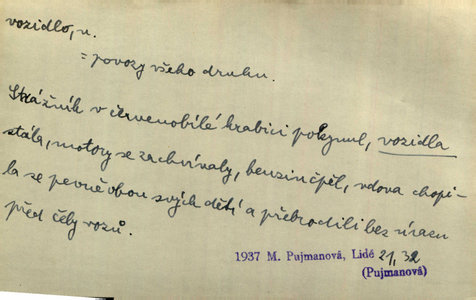 vozidlo, n.
= povozy všeho druhu.
Strážník v červenobílé krabici pokynul, vozidla
stála, motory se zachvívaly, benzin čpěl, vdova chopi-
la se pevně obou svých dětí a přebrodili bez úrazu
před čely vozů.
1937 M. Pujmanová, Lidé 21, 32
(Pujmanová)